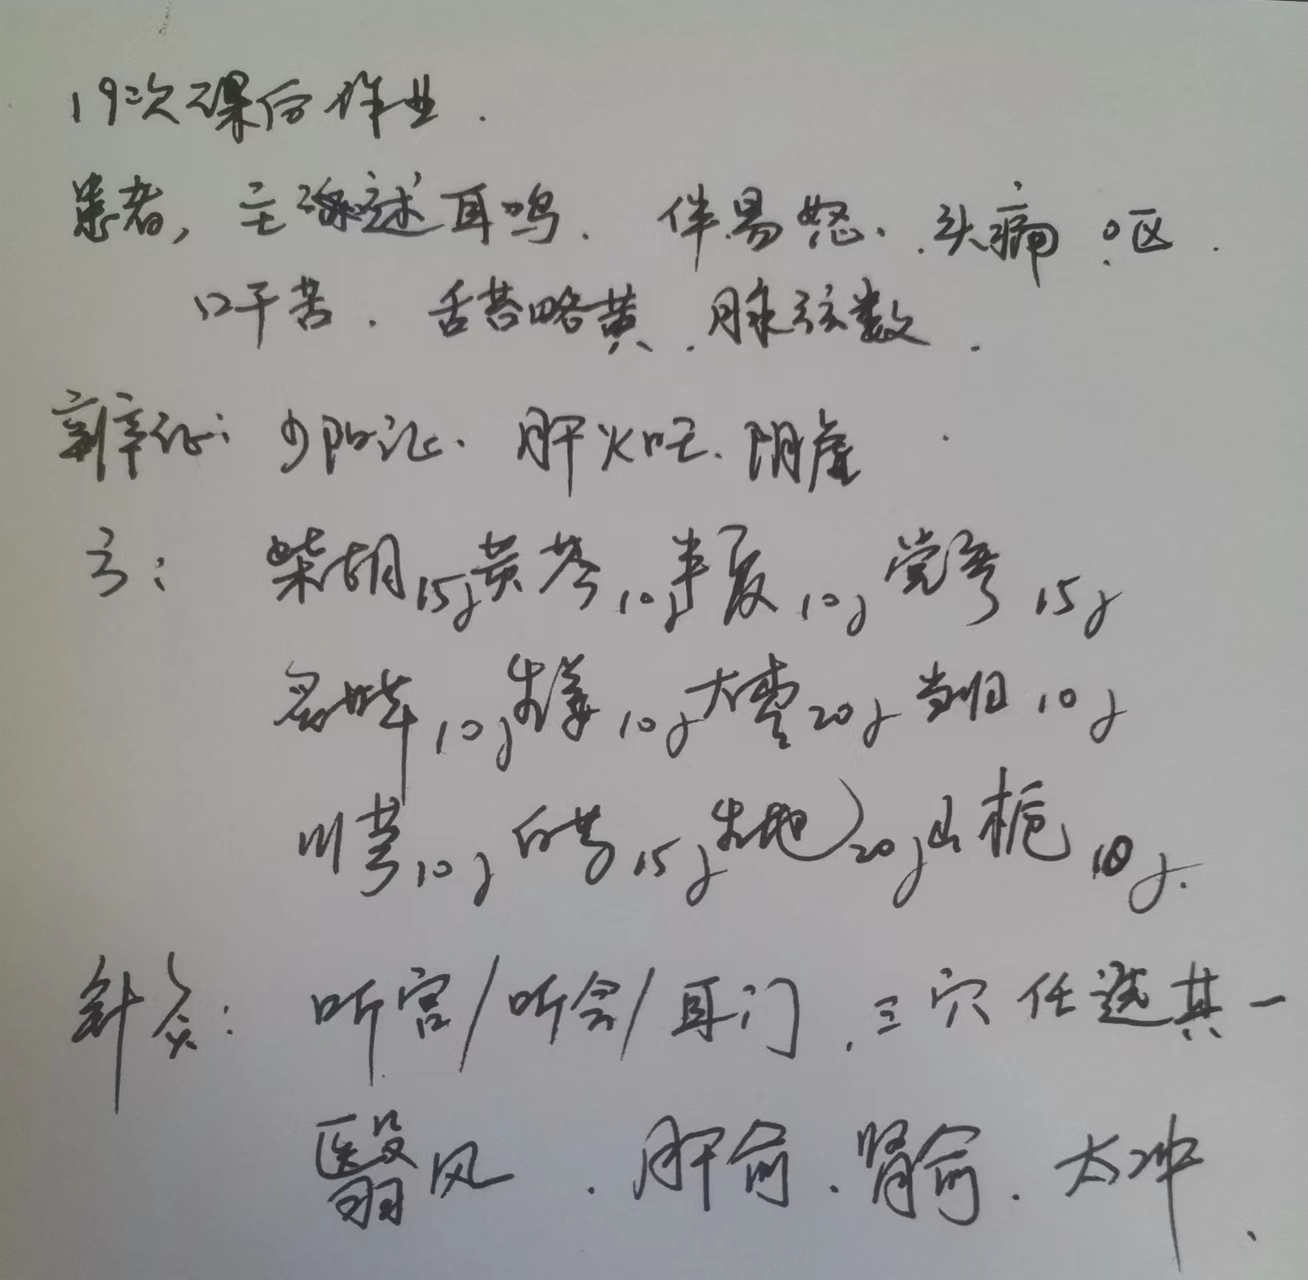 19次课后作业.
患者,主诉述耳鸣.伴易怒.头痛.呕.
口干苦.舌苔略黄.脉弦数.
辨证:少阳证.肝火旺.阴虚
方:柴胡15g黄芩10g半夏10g党参15g
炙甘草10g生姜10g大枣20g当归10g
川芎10g白芍15g生地20g山栀10g.
针灸:听宫/听会/耳门.三穴任选其一
翳风.肝俞.肾俞.太冲.